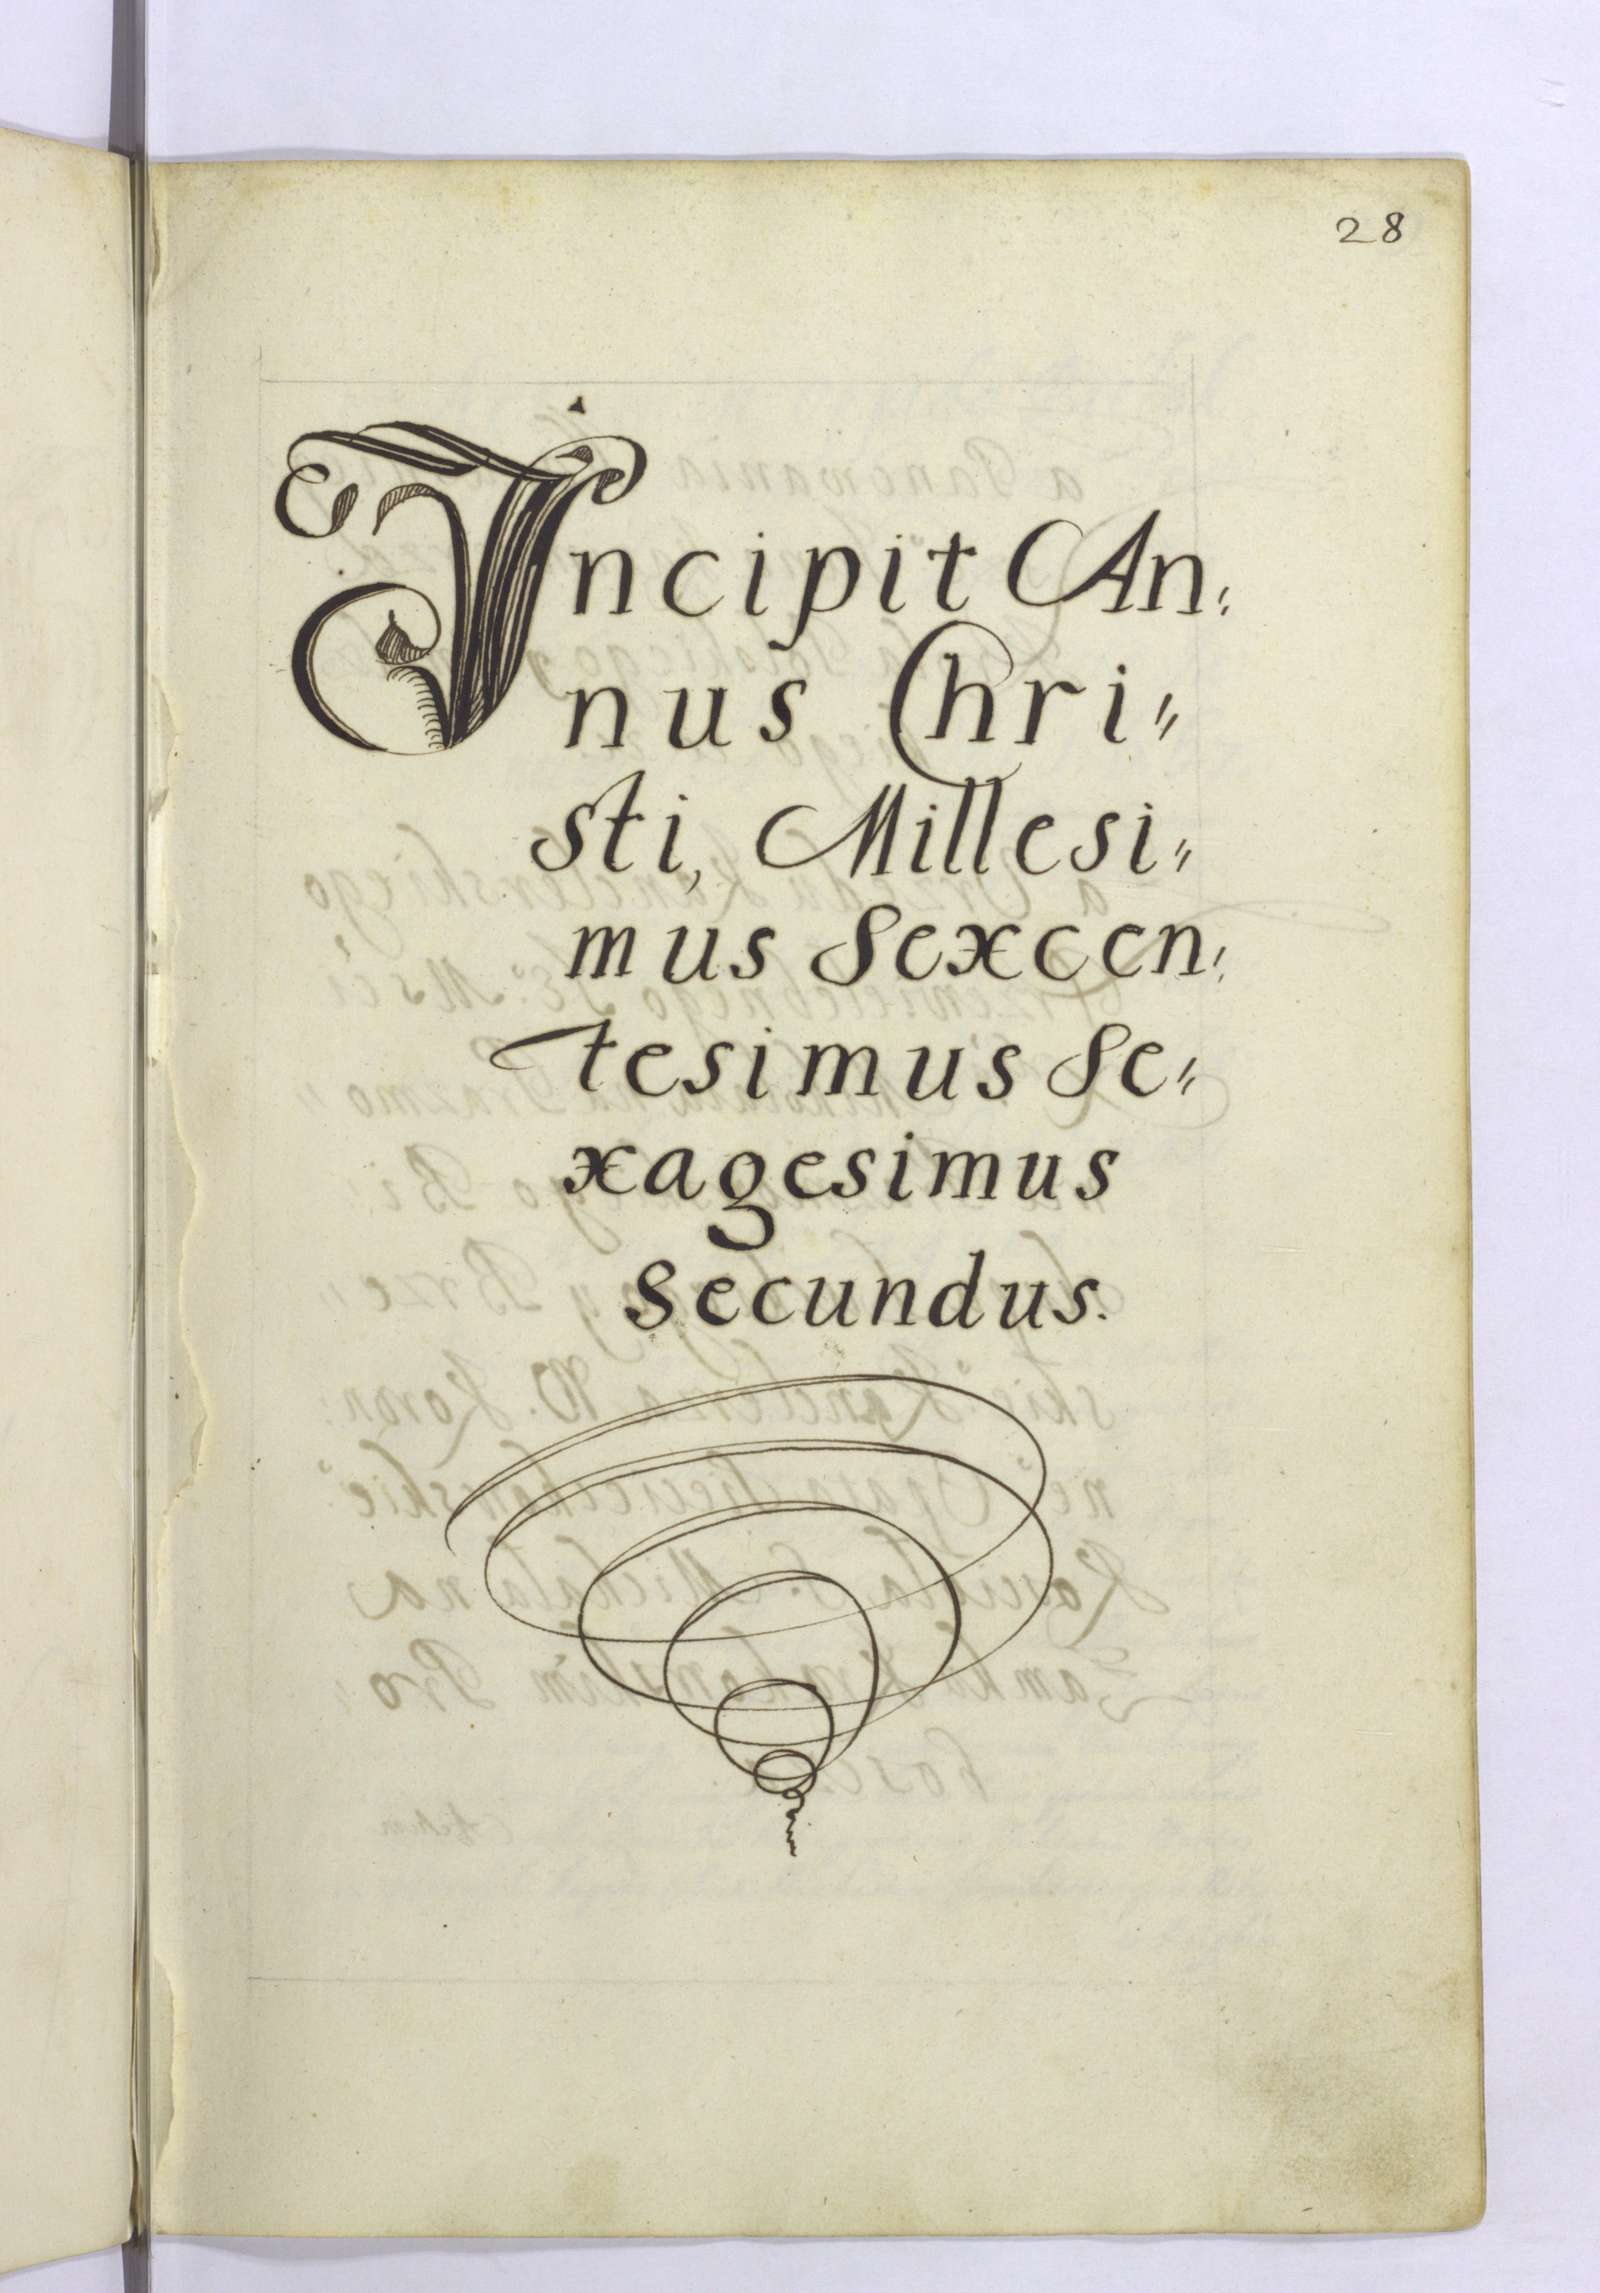 28
Incipit An:
nus Chri=
sti, Millesi=
mus Sexcen:
tesimus Se=
xagesimus
Secundus.